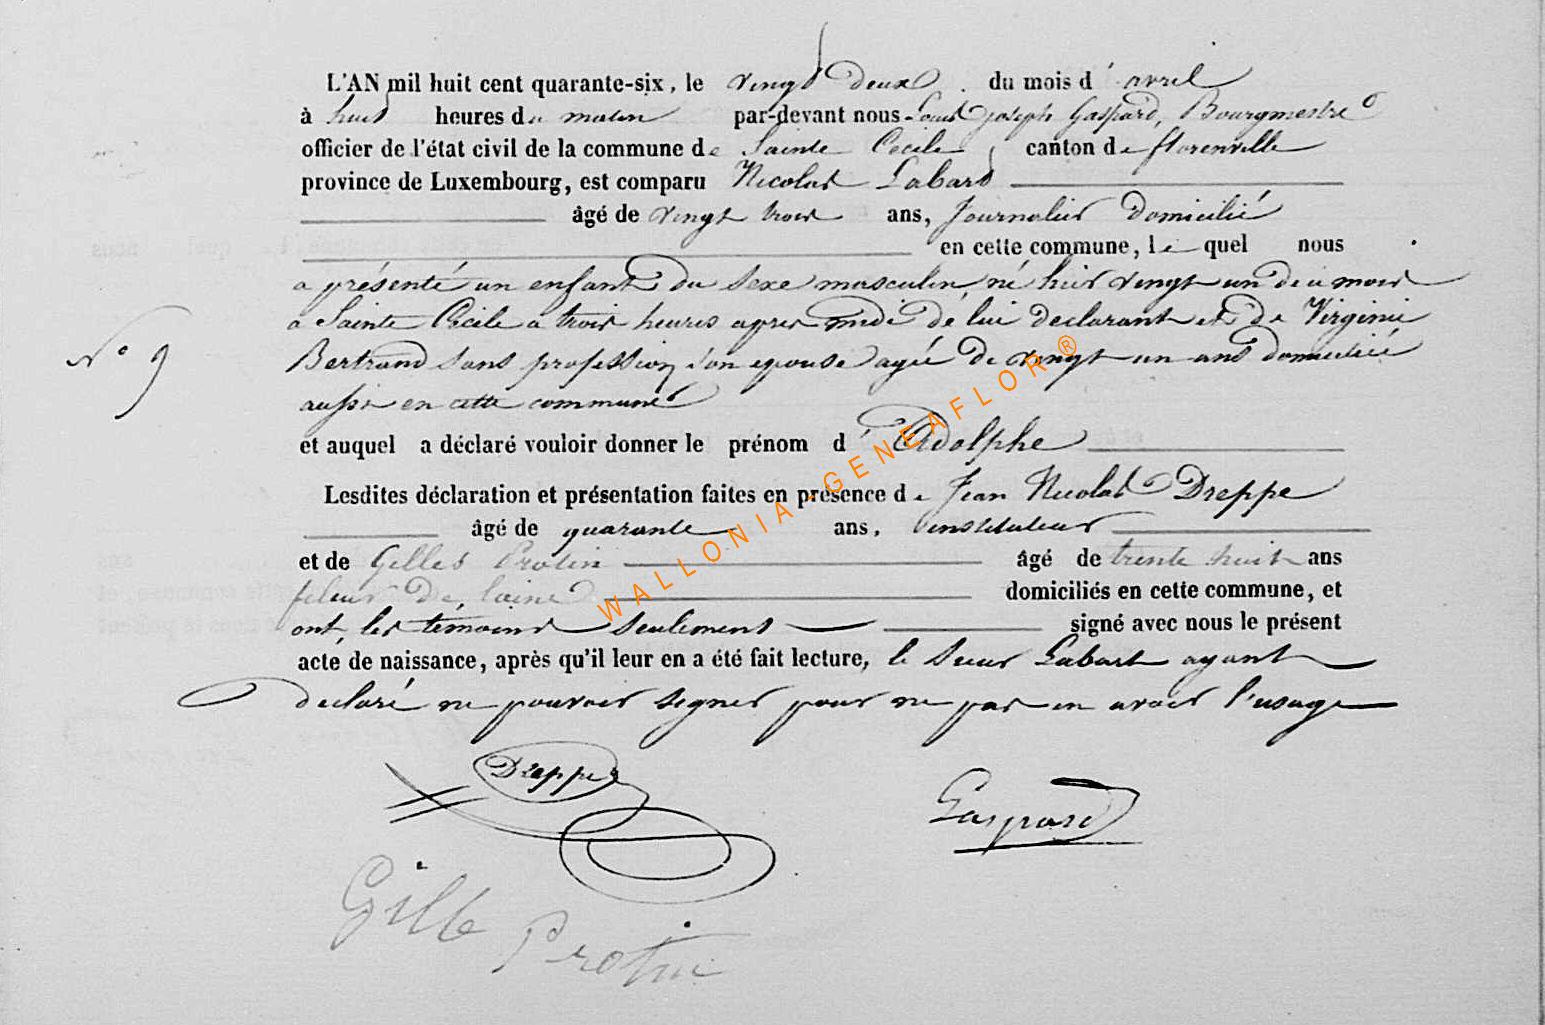 L'AN mil huit cent quarante-six, le vingt deux du mois d'avril
à huit heures du matin par-devant nous Louis joseph Gaspard, Bourgmestre
officier de l'état civil de la commune de Sainte Cecile, canton de florenville
province de Luxembourg, est comparu Nicolas Labard
âgé de vingt trois ans, Journalier domicilié
en cette commune, le quel nous
a présenté un enfant du sexe masculin, né hier vingt un de ce mois
a Sainte Cecile a trois heures apres midi de lui declarant et de Virginie
N° 9
Bertrand sans profession son epouse agée de vingt un ans domiciliée
aussi en cette commune
et auquel a déclaré vouloir donner le prénom d'Adolphe
Lesdites déclaration et présentation faites en présence de Jean Nicolas Dreppe
âgé de quarante ans, instituteur
et de Gilles Protin âgé de trente huit ans
fileur de laine domiciliés en cette commune, et
ont les témoins seulement signé avec nous le présent
acte de naissance, après qu'il leur en a été fait lecture, le sieur Labart ayant
declaré ne pouvoir signer pour ne pas en avoir l'usage
Dreppe
Gaspard
Gille Protin
WALLONIA-GENEAFLOR®